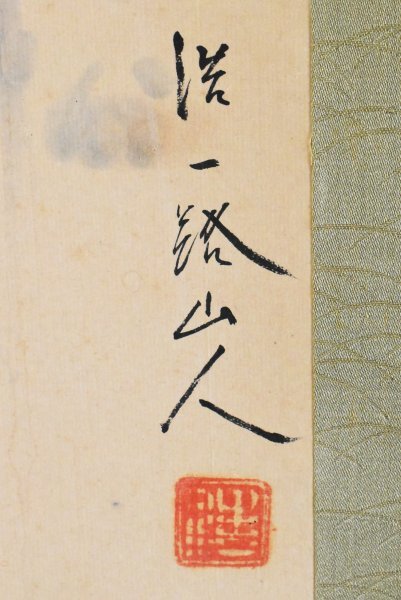 浩一路山人